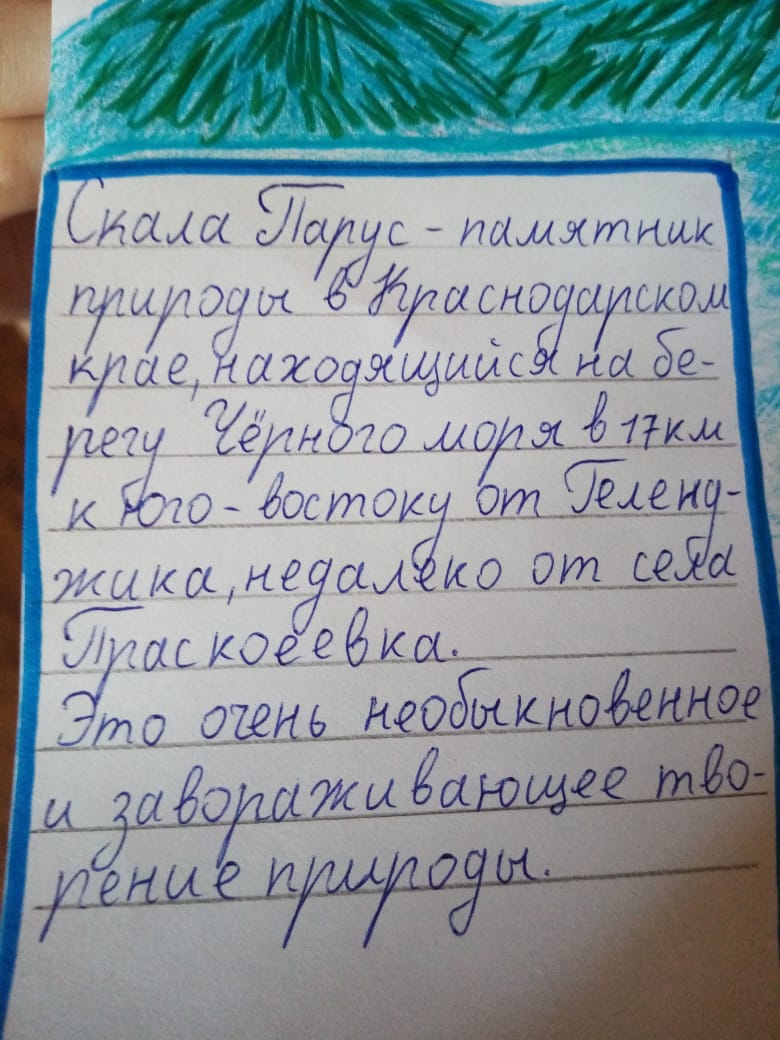 Скала Парус - памятник
природы в Краснодарском
крае, находящийся на бе-
регу Чёрного моря в 17 км
к юго - востоку от Геленд-
жика, недалеко от села
Прасковеевка.
Это очень необыкновенное
и завораживающее тво-
рение природы.